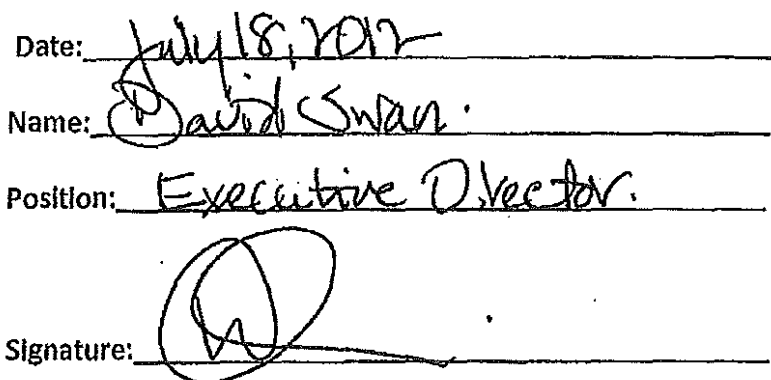 Date: July 18, 2012
Name: David Swan.
Position: Executive Director.
Signature: